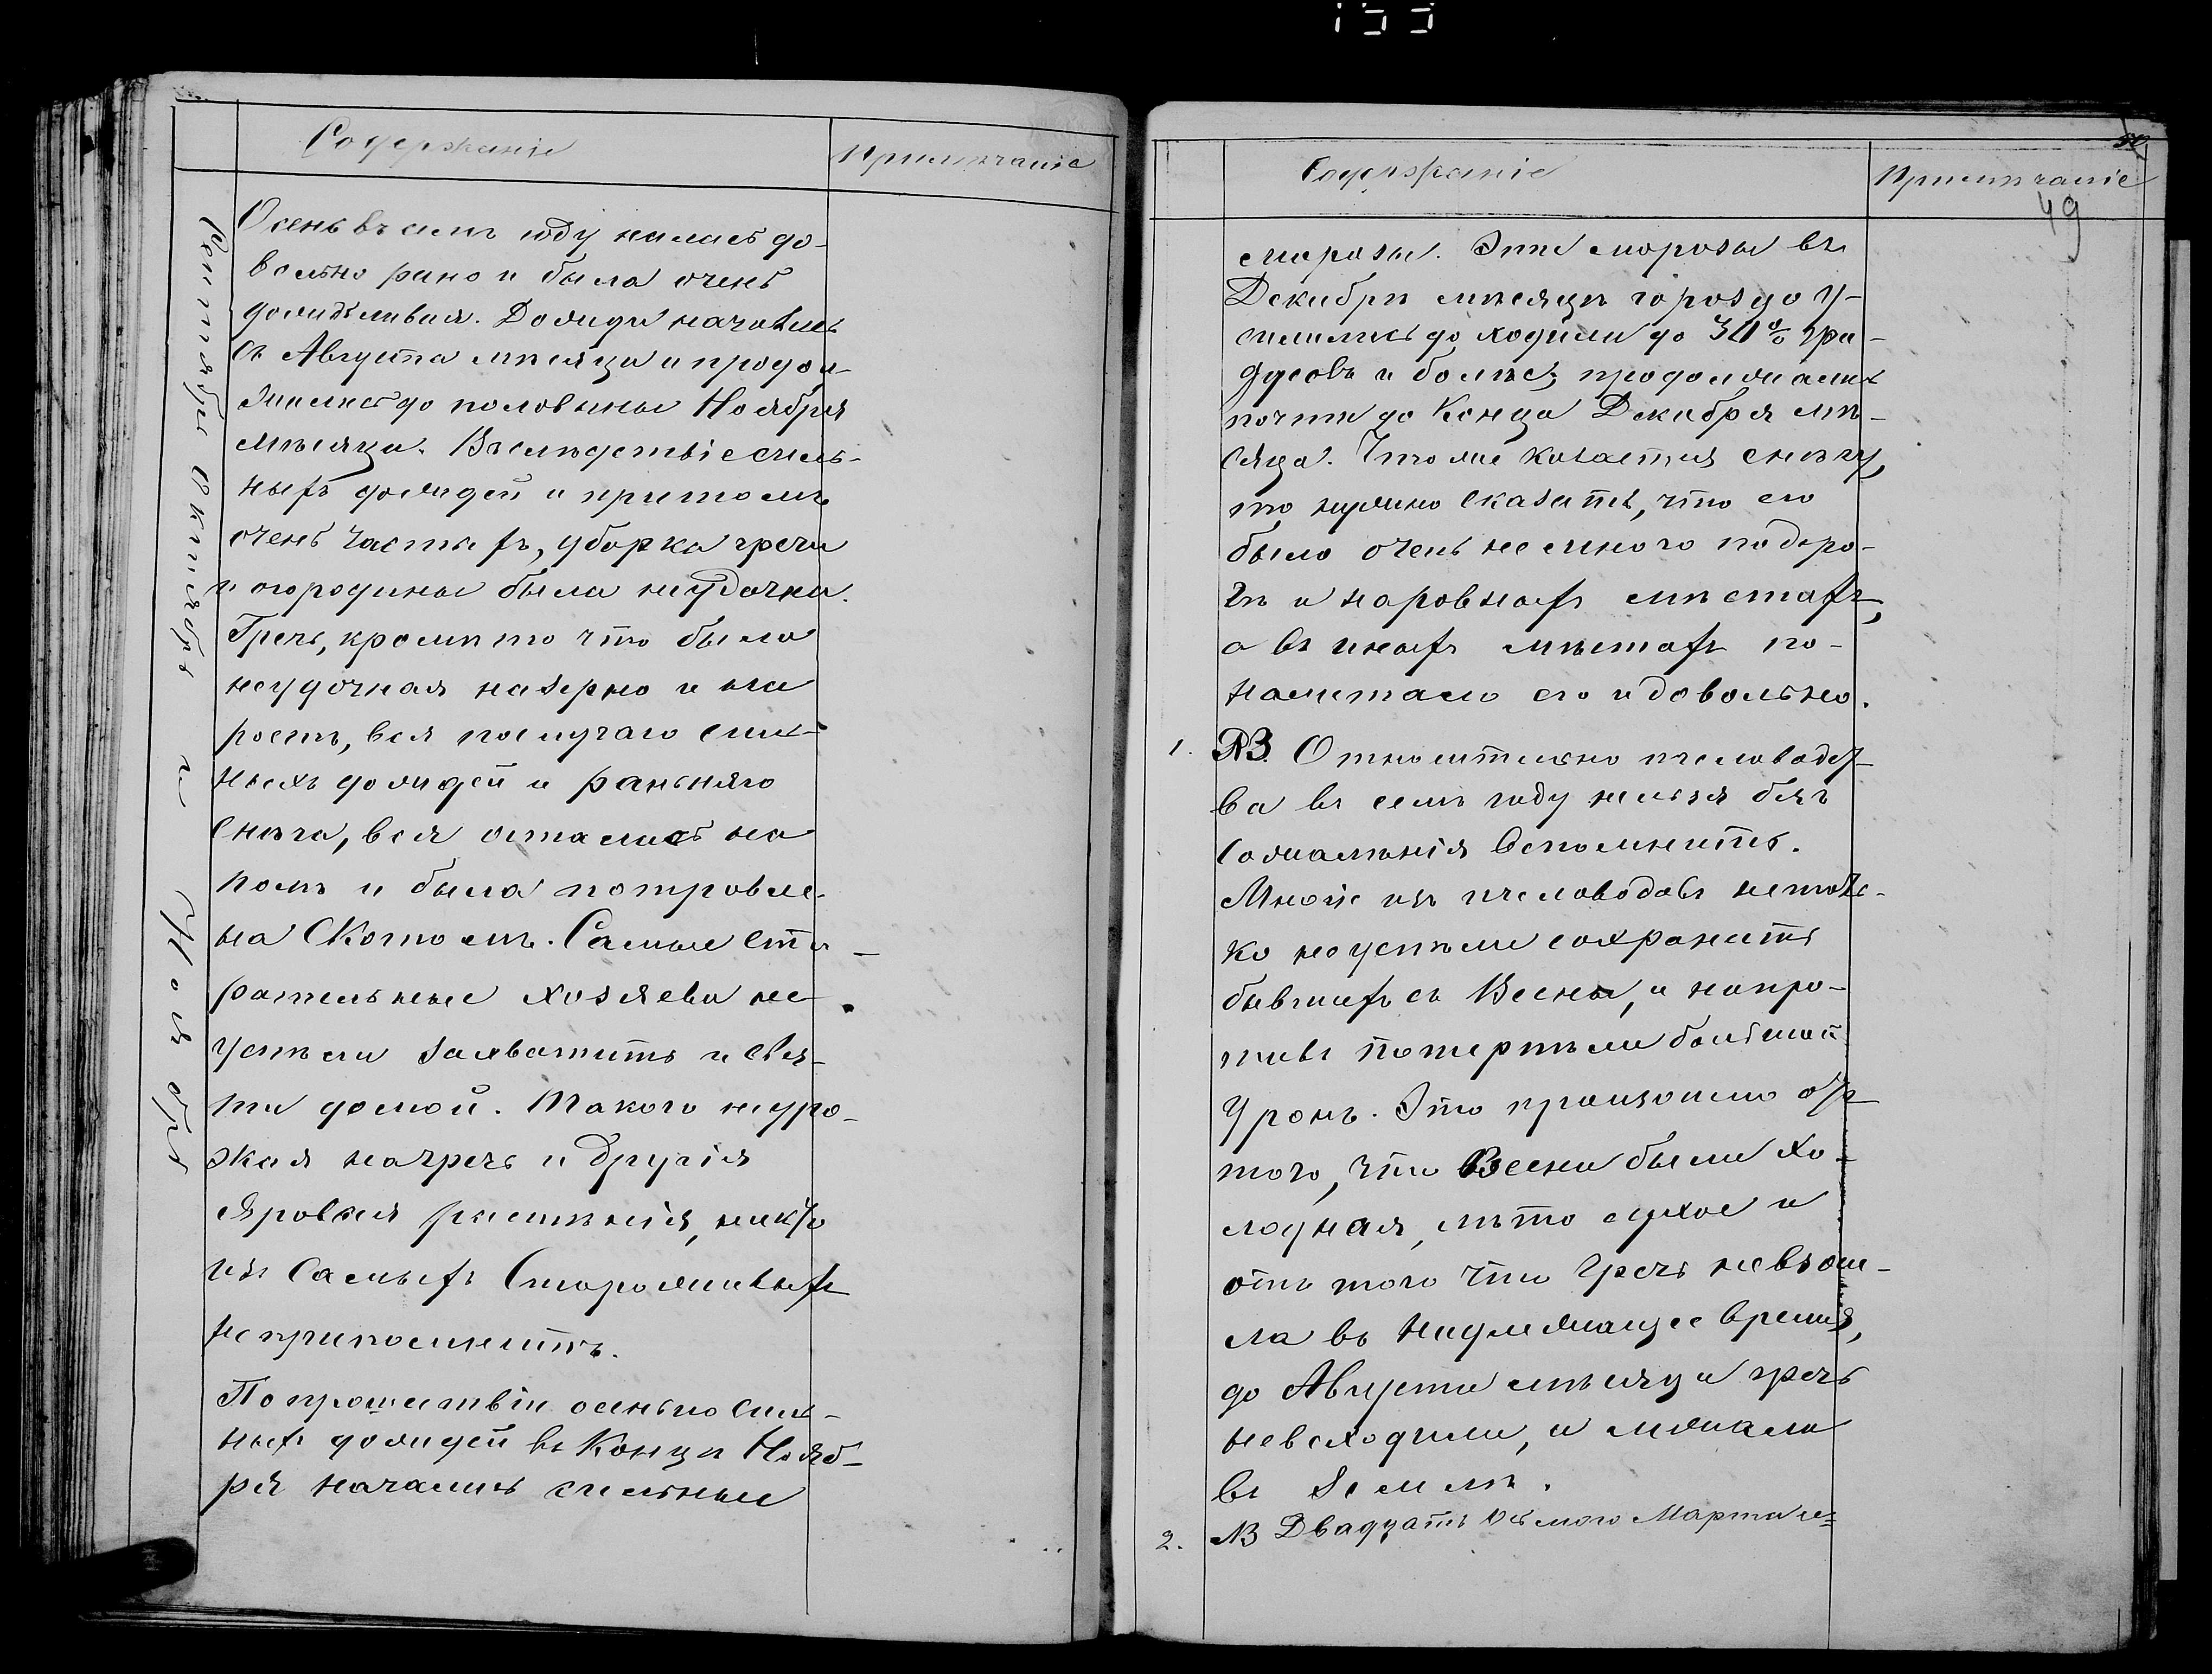 155
Содержаніе
Примѣчаніе
Сентябрь Октябрь и Ноябрь
Осень въ семъ году началась до-
вольно рано и была очень
дождьливая. Дожди начались
съ Августа мѣсяца и продол-
жились до половины Ноября
мѣсяца. Въ слѣдствіе силь-
ныхъ дождей и притомъ
очень частыхъ, уборка гречи
и огородины была неудачна.
Гречь, кромѣ то что была
неудачная на зерно и на
ростъ, вся по случаю силь-
ныхъ дождей и раньняго
снѣга, вся осталась на
полѣ и была потровле-
на Скотомъ. Самые ста-
рательные хозяева не
успѣли захватить и свез-
ти домой. Такого неуро-
жая на гречь и другія
яровыя растѣнія, никто
изъ Самыхъ Старожиловыхъ
не припомнитъ.
По прошествіи осенью силь-
ныхъ дождей въ Концѣ Нояб-
ря начались сильные
Содержаніе
Примѣчаніе
50
49
морозы. Эти морозы въ
Декабрѣ мѣсяцѣ гораздо у-
силились до ходили до 30% гра-
дусовъ и болѣе, продолжались
почти до Конца Декабря мѣ-
сяца. Что же касается снѣгу,
то нужно сказать, что его
было очень не много по доро-
гѣ и на ровныхъ мѣстахъ,
а въ иныхъ мѣстахъ по-
наметало его и довольно.
1. NB. Относительно пчеловодст-
ва въ семъ году нельзя безъ
сожалѣнія вспомнить.
Многіе изъ пчеловодовъ не толь-
ко не успѣли сохранить
бывшихъ съ Весны, и напро-
тивъ потерпѣли большой
Уронъ. Это произошло отъ
того, что Весна была Хо-
лодная, лѣто сухое и
отъ того что Гречь не взош-
ла въ надлежащее время,
до Августа мѣсяца гречь
не всходила, и лежала
въ Землѣ.
2. NB Двадцать Осьмого Марта че-